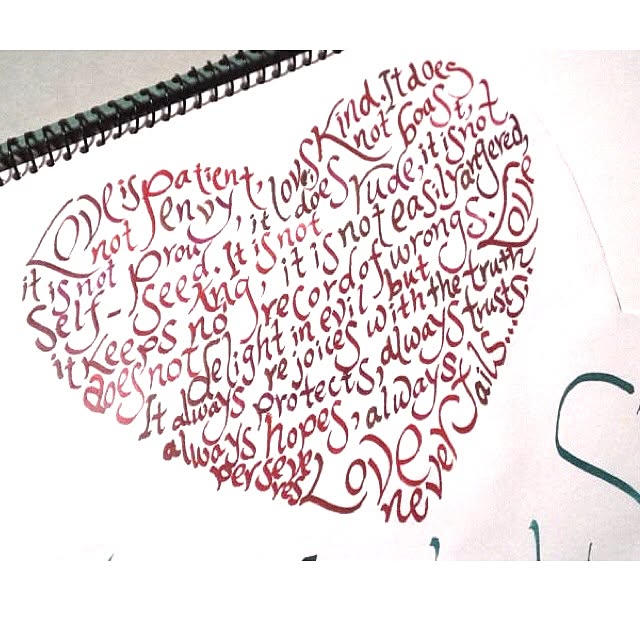 Love is patient, love is Kind. It does
not envy, it does not boast,
it is not proud. It is not rude, it is not
Self-Seeking, it is not easily angered,
it Keeps no record of wrongs. Love
does not delight in evil but
rejoices with the truth
It always protects, always trusts..
always hopes, always
perseve
res Love
never fails...